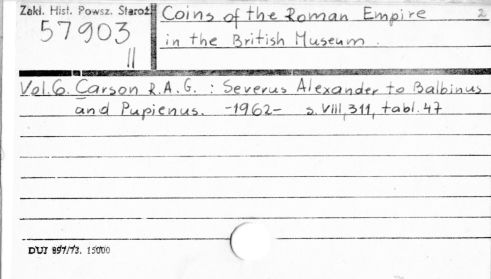 Zakł. Hist. Powsz. Staroż.
57903
II
Coins of the Roman Empire
2
in the British Museum.
Vol.6. Carson R.A.G. : Severus Alexander to Balbinus
and Pupienus. -1962- s. VIII, 311, tabl. 47
DUJ 897/73. 15000